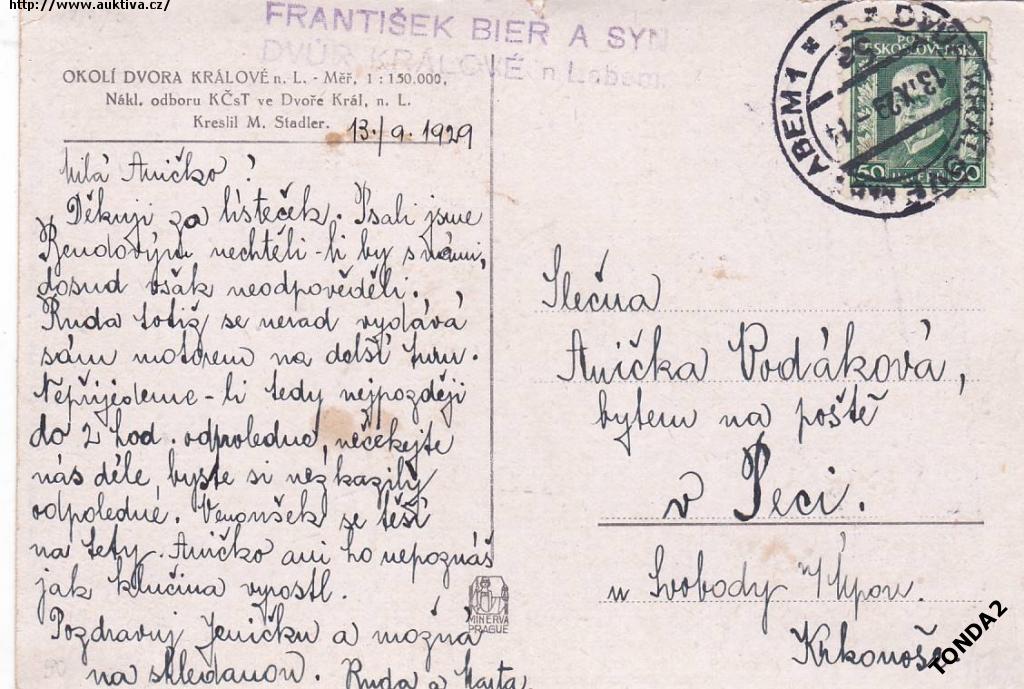 http://www.auktiva.cz/
FRANTIŠEK BIER A SYN
DVŮR KRÁLOVÉ n Labem.
OKOLÍ DVORA KRÁLOVÉ n. L. - Měř. 1 : 150.000.
Nákl. odboru KČsT ve Dvoře Král. n. L.
Kreslil M. Stadler.
13./9. 1929
Milá Aničko!
Děkuji za lísteček. Psali jsme
Bendovým nechtěli-li by s námi,
dosud však neodpověděli.
Ruda totiž se nerad vydává
sám motorem na delší turu.
Nepřijedeme-li tedy nejpozději
do 2 hod. odpoledne, nečekejte
nás déle, byste si nezkazily
odpoledne. Venoušek se těší
na tety. Aničko ani ho nepoznáš
jak klučina vyrostl.
Pozdravuj Jeničku a možná
na shledanou. Ruda a Marta
MINERVA
PRAGUE
ČESKOSLOVENSKÁ
50 50
ABEM 1
13.IX.29
Slečna
Anička Vodáková,
bytem na poště
v Peci.
u Svobody n/Úpou.
Krkonoše
TONDA2